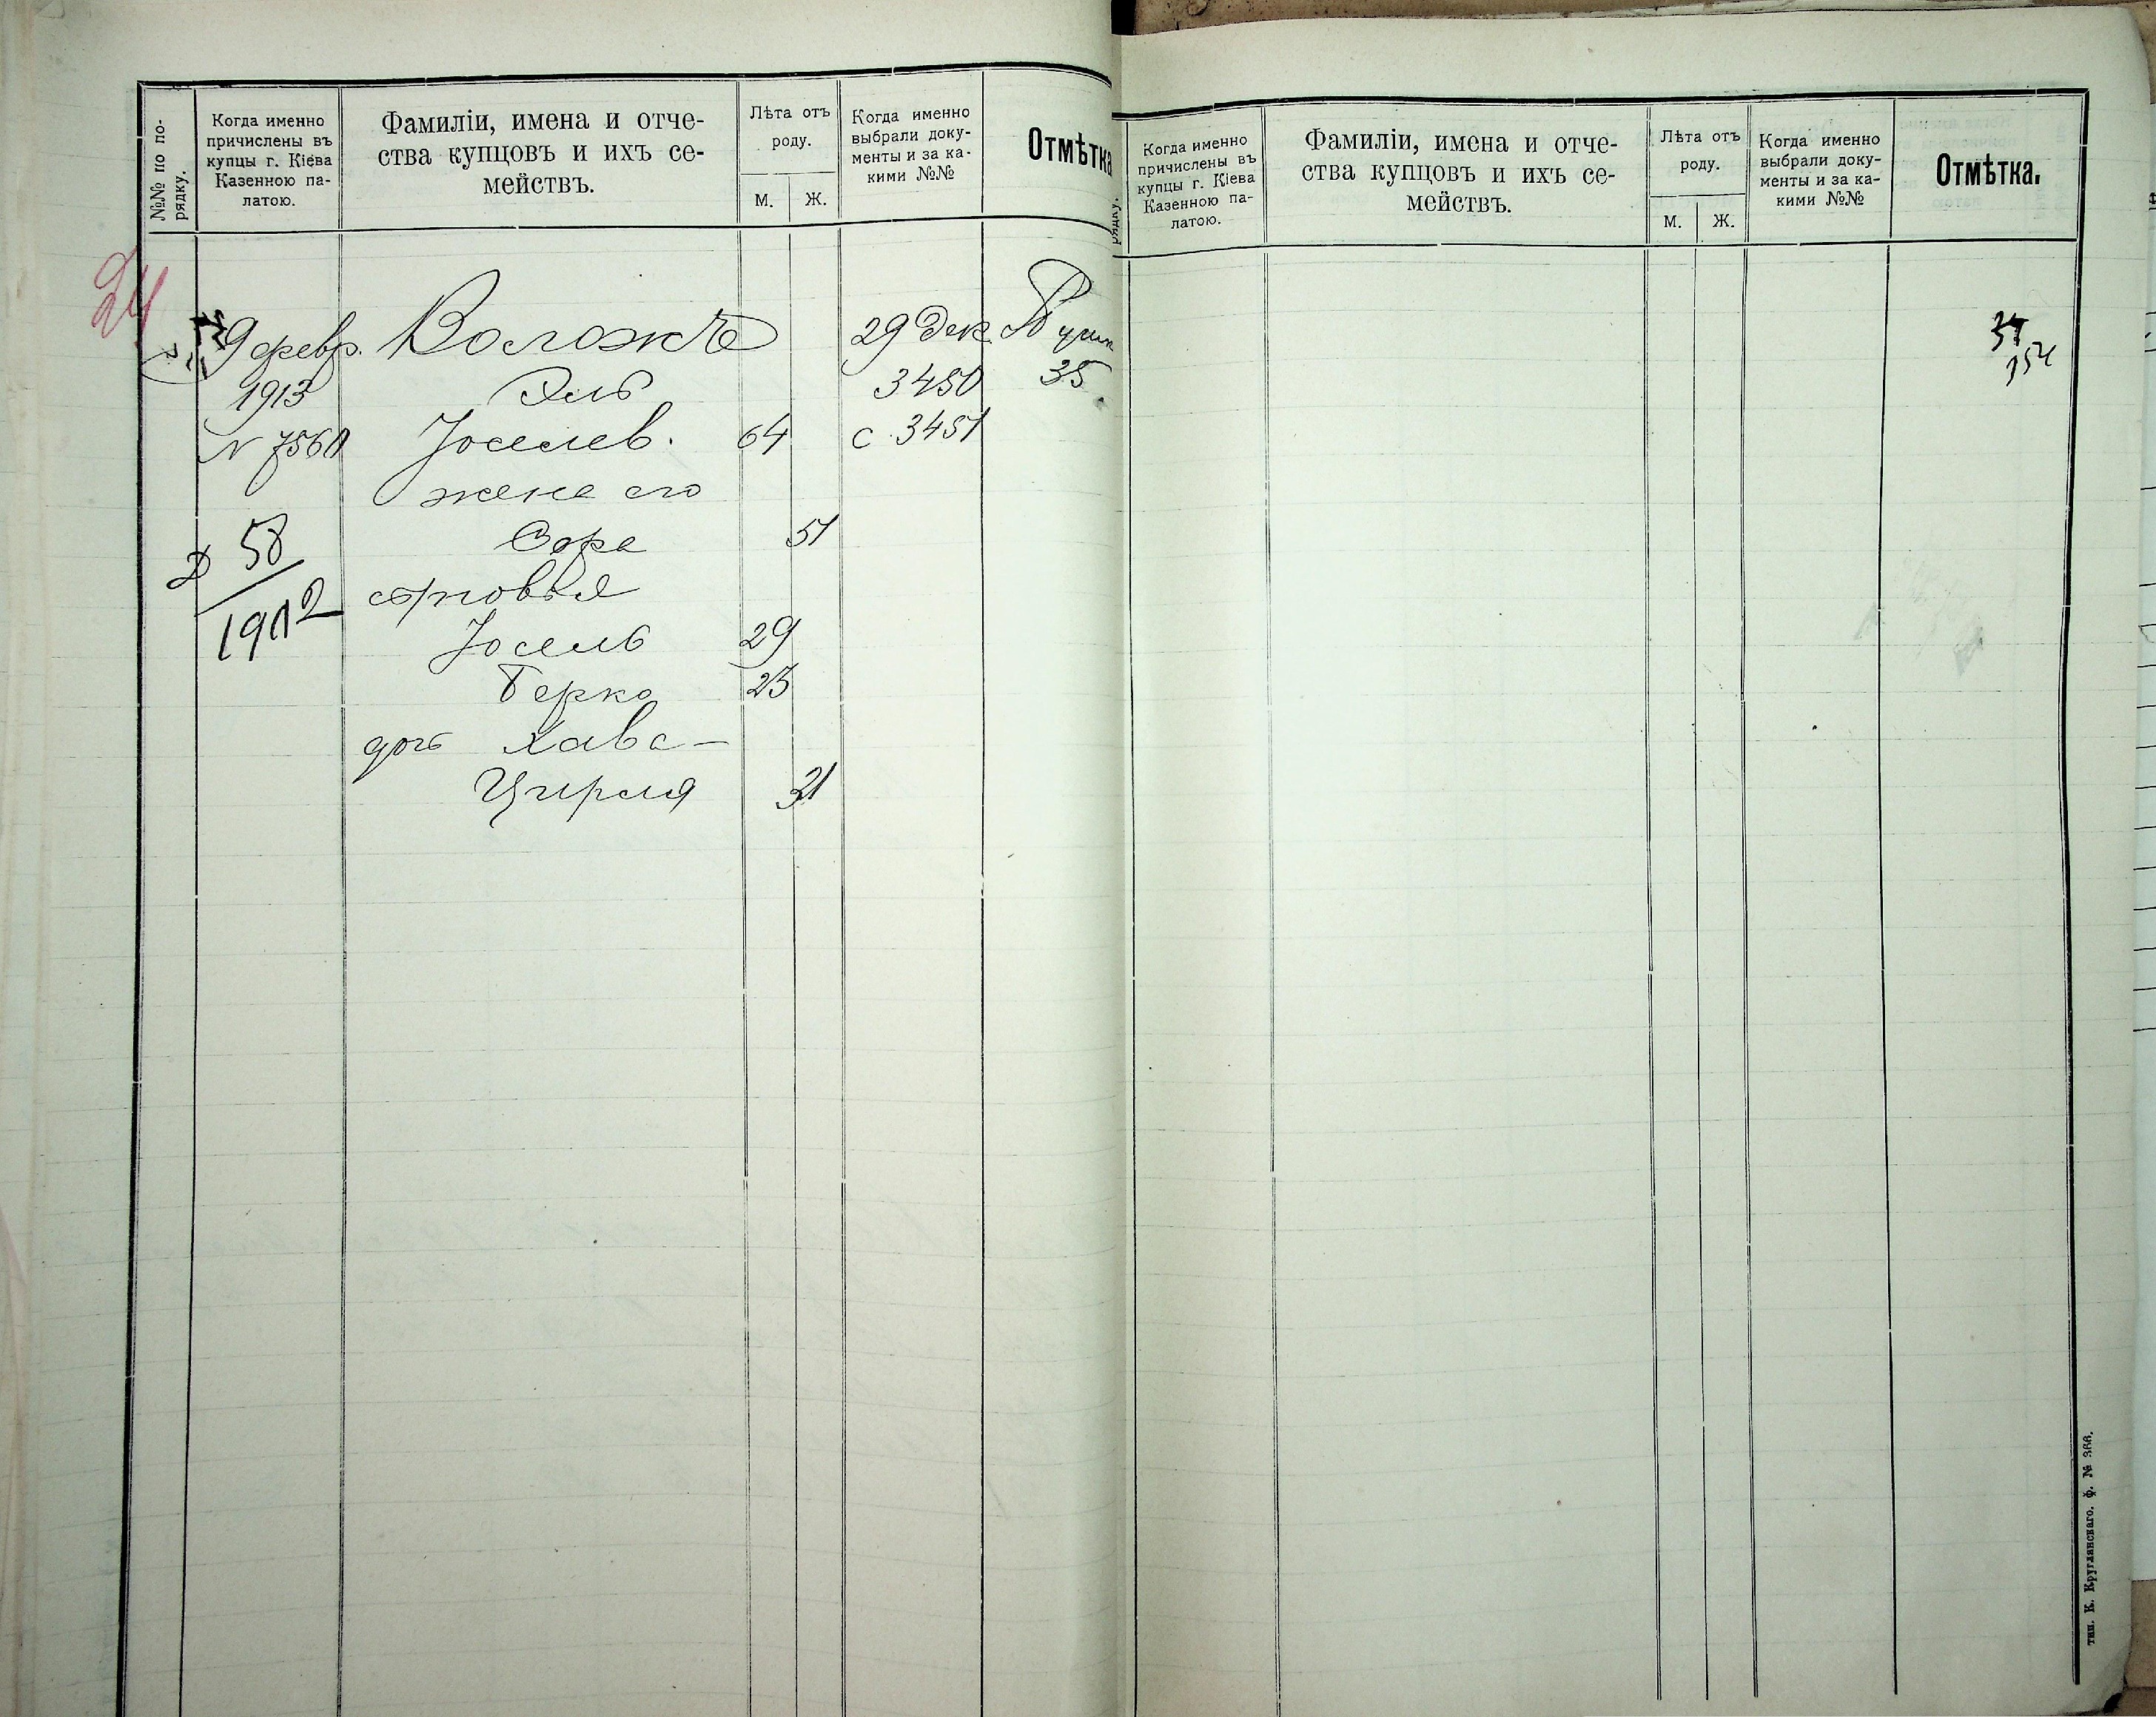 №№ по по-
рядку.
Когда именно
причислены въ
купцы г. Кіева
Казенною па-
латою.
Фамиліи, имена и отче-
ства купцовъ и ихъ се-
мействъ.
Лѣта отъ
роду.
М.
Ж.
Когда именно
выбрали доку-
менты и за ка-
кими №№
Отмѣтка
24
9 февр.
1913
N 7560
58
1912
29 дек
3450
с 3451
35
Эль
Іоселев. 64
жена его
Сора 51
сыновья
Іосель 29
Берко 23
дочь Хава-
Цирля 21
рядку.
Когда именно
причислены въ
купцы г. Кіева
Казенною па-
латою.
Фамиліи, имена и отче-
ства купцовъ и ихъ се-
мействъ.
Лѣта отъ
роду.
М.
Ж.
Когда именно
выбрали доку-
менты и за ка-
кими №№
Отмѣтка.
34
354
тип. К. Круглянскаго. ф. № 366.